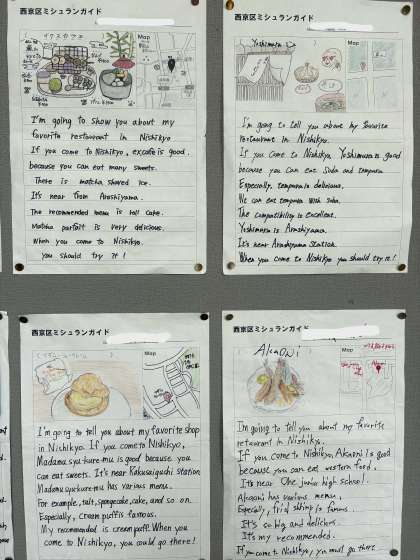 西京区ミシュランガイド
イクスカフェ
Map
I'm going to show you about my
favorite restaurant in Nishikyo
If you come to Nishikyo, excafe is good.
because you can eat many sweets.
There is matcha shaved ice.
It's near from Arashiyama.
The recommended menu is roll cake.
Matcha parfait is very delicious.
When you come to Nishikyo.
you should try it!
西京区ミシュランガイド
Yoshimura
Map
I'm going to tell you about my favorite
restaurant in Nishikyo.
If you come to Nishikyo, Yoshimura is good
because you can eat Soba and tempura
Especially, tempura is delicious.
We can eat tempura with Soba.
The compatibility is excellent.
Yoshimura is Arashiyama.
It's near Arashiyama Station.
When you come to Nishikyo you should try it!
西京区ミシュランガイド
Map
I'm going to tell you about my favorite shop
in Nishikyo. If you come to Nishikyo,
Madamu syu-kure-mu is good because you
can eat sweets. It's near Kakusaiguchi Station
Madamu syu-kure-mu has various menu.
For example, tait, spongecake, cake, and so on.
Especially, cream puff is famous.
My recommended is cream puff. When you
come to Nishikyo, you could go there!
西京区ミシュランガイド
AkaOni
Map
I'm going to tell you about my favorite
restaurant in Nishikyo.
If you come to Nishikyo, Akaoni is good
because you can eat western food.
It's near One junior high school.
Akaoni has various menu,
Especially, fried shrimp is famous.
It's so big and delicious
It's my recommended.
If you come to Nishikyo, you must go there!